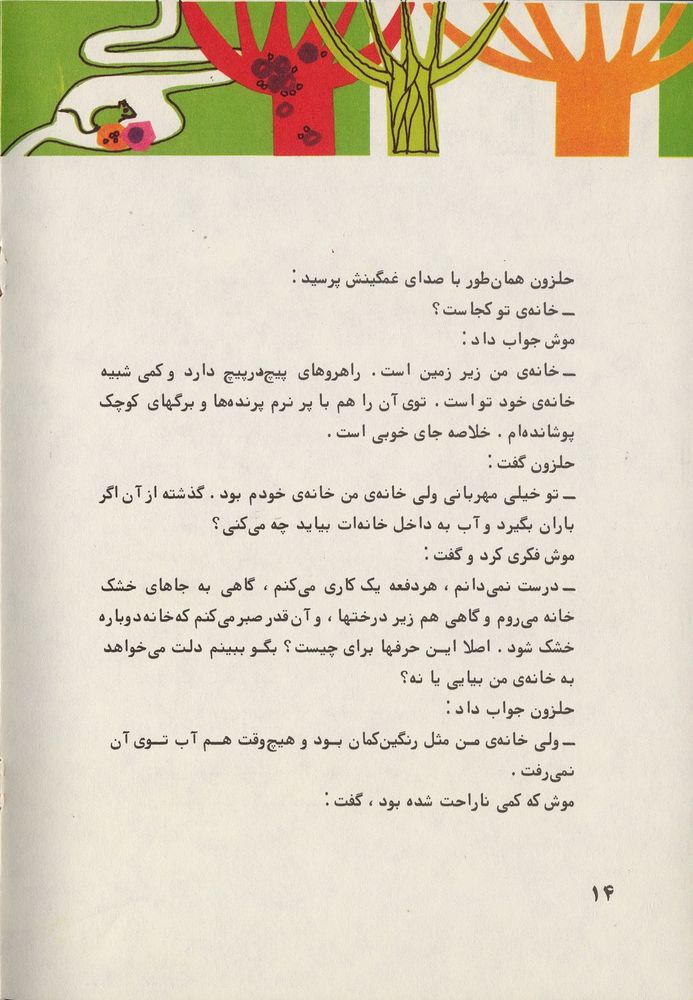 حلزون همان‌طور با صدای غمگینش پرسید :
ــ خانه‌ی تو کجاست ؟
موش جواب داد :
ــ خانه‌ی من زیر زمین است . راهروهای پیچ‌درپیچ دارد و کمی شبیه
خانه‌ی خود تو است . توی آن را هم با پر نرم پرنده‌ها و برگهای کوچک
پوشانده‌ام . خلاصه جای خوبی است .
حلزون گفت :
ــ تو خیلی مهربانی ولی خانه‌ی من خانه‌ی خودم بود . گذشته از آن اگر
باران بگیرد و آب به داخل خانه‌ات بیاید چه می‌کنی ؟
موش فکری کرد و گفت :
ــ درست نمی‌دانم ، هردفعه یک کاری می‌کنم ، گاهی به جاهای خشک
خانه می‌روم و گاهی هم زیر درختها ، و آن‌قدر صبر می‌کنم که خانه دوباره
خشک شود . اصلا این حرفها برای چیست ؟ بگو ببینم دلت می‌خواهد
به خانه‌ی من بیایی یا نه؟
حلزون جواب داد :
ــ ولی خانه‌ی من مثل رنگین‌کمان بود و هیچ‌وقت هم آب توی آن
نمی‌رفت .
موش که کمی ناراحت شده بود ، گفت :
۱۴